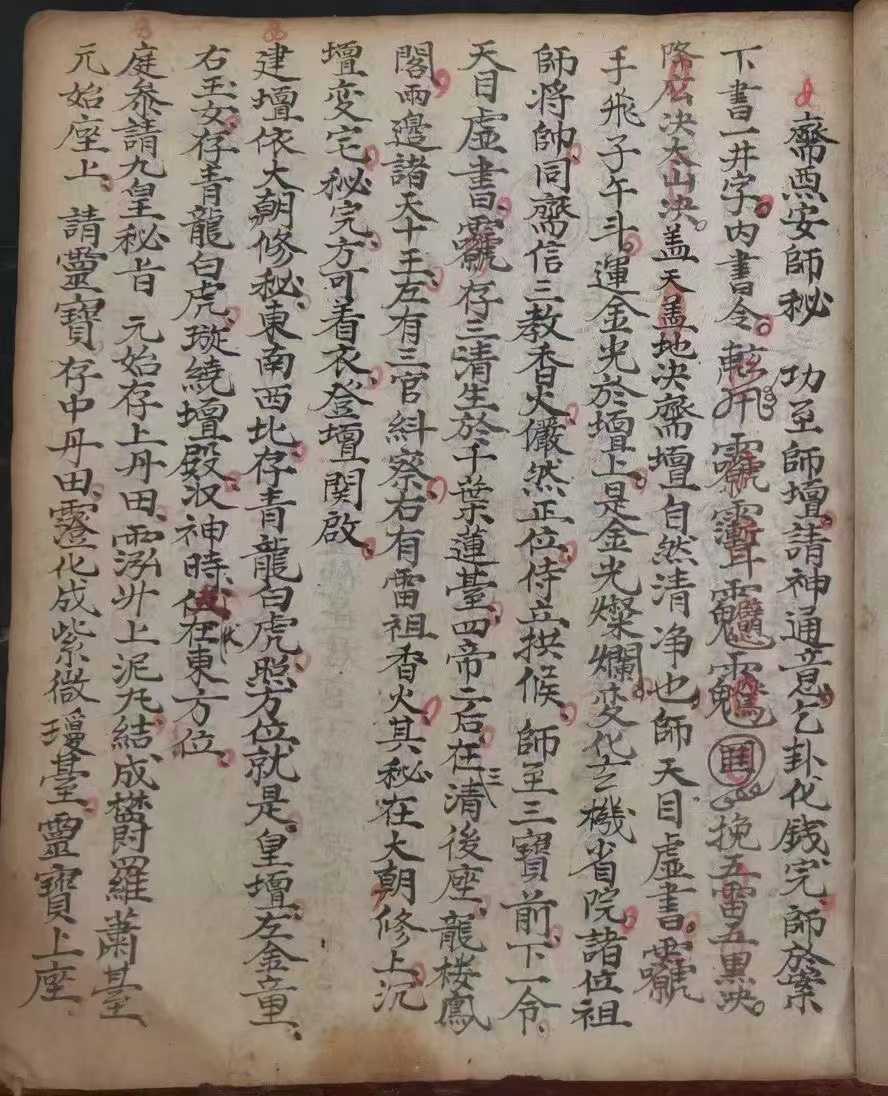 齋㷠安師秘　功至師壇。請神通意。乞卦化錢完。師於案
下書一井字。内書令。挽五雷五黑决。
降去决太山决。盖天盖地决齋壇自然清净也。師天目虚書。
手飛子午斗。運金光於壇上是金光燦爛。变化玄機省院諸位祖
師将帥。同齋信三教香火。儼然正位。侍立拱候。師至三寳前。下一令、
天目虚書。存三清生於千葉蓮臺。四帝二后在三清後座。龍楼鳳
閣。兩邊諸天十王。左有三官糾察。右有雷祖香火。其秘在大朝修上沉
壇变宅。秘完方可着衣。登壇関啟。
建壇依大朝修秘、東南西北存青龍白虎。照方位就是。皇壇左金童、
右玉女。存青龍白虎。璇繞壇殿。収神時伏在東方位。
庭叅請九皇秘旨　元始存上丹田。泓廾上泥丸。結成欝羅蕭臺、
元始座上。請靈寳存中丹田。化成紫微瓊臺。靈寳上座。